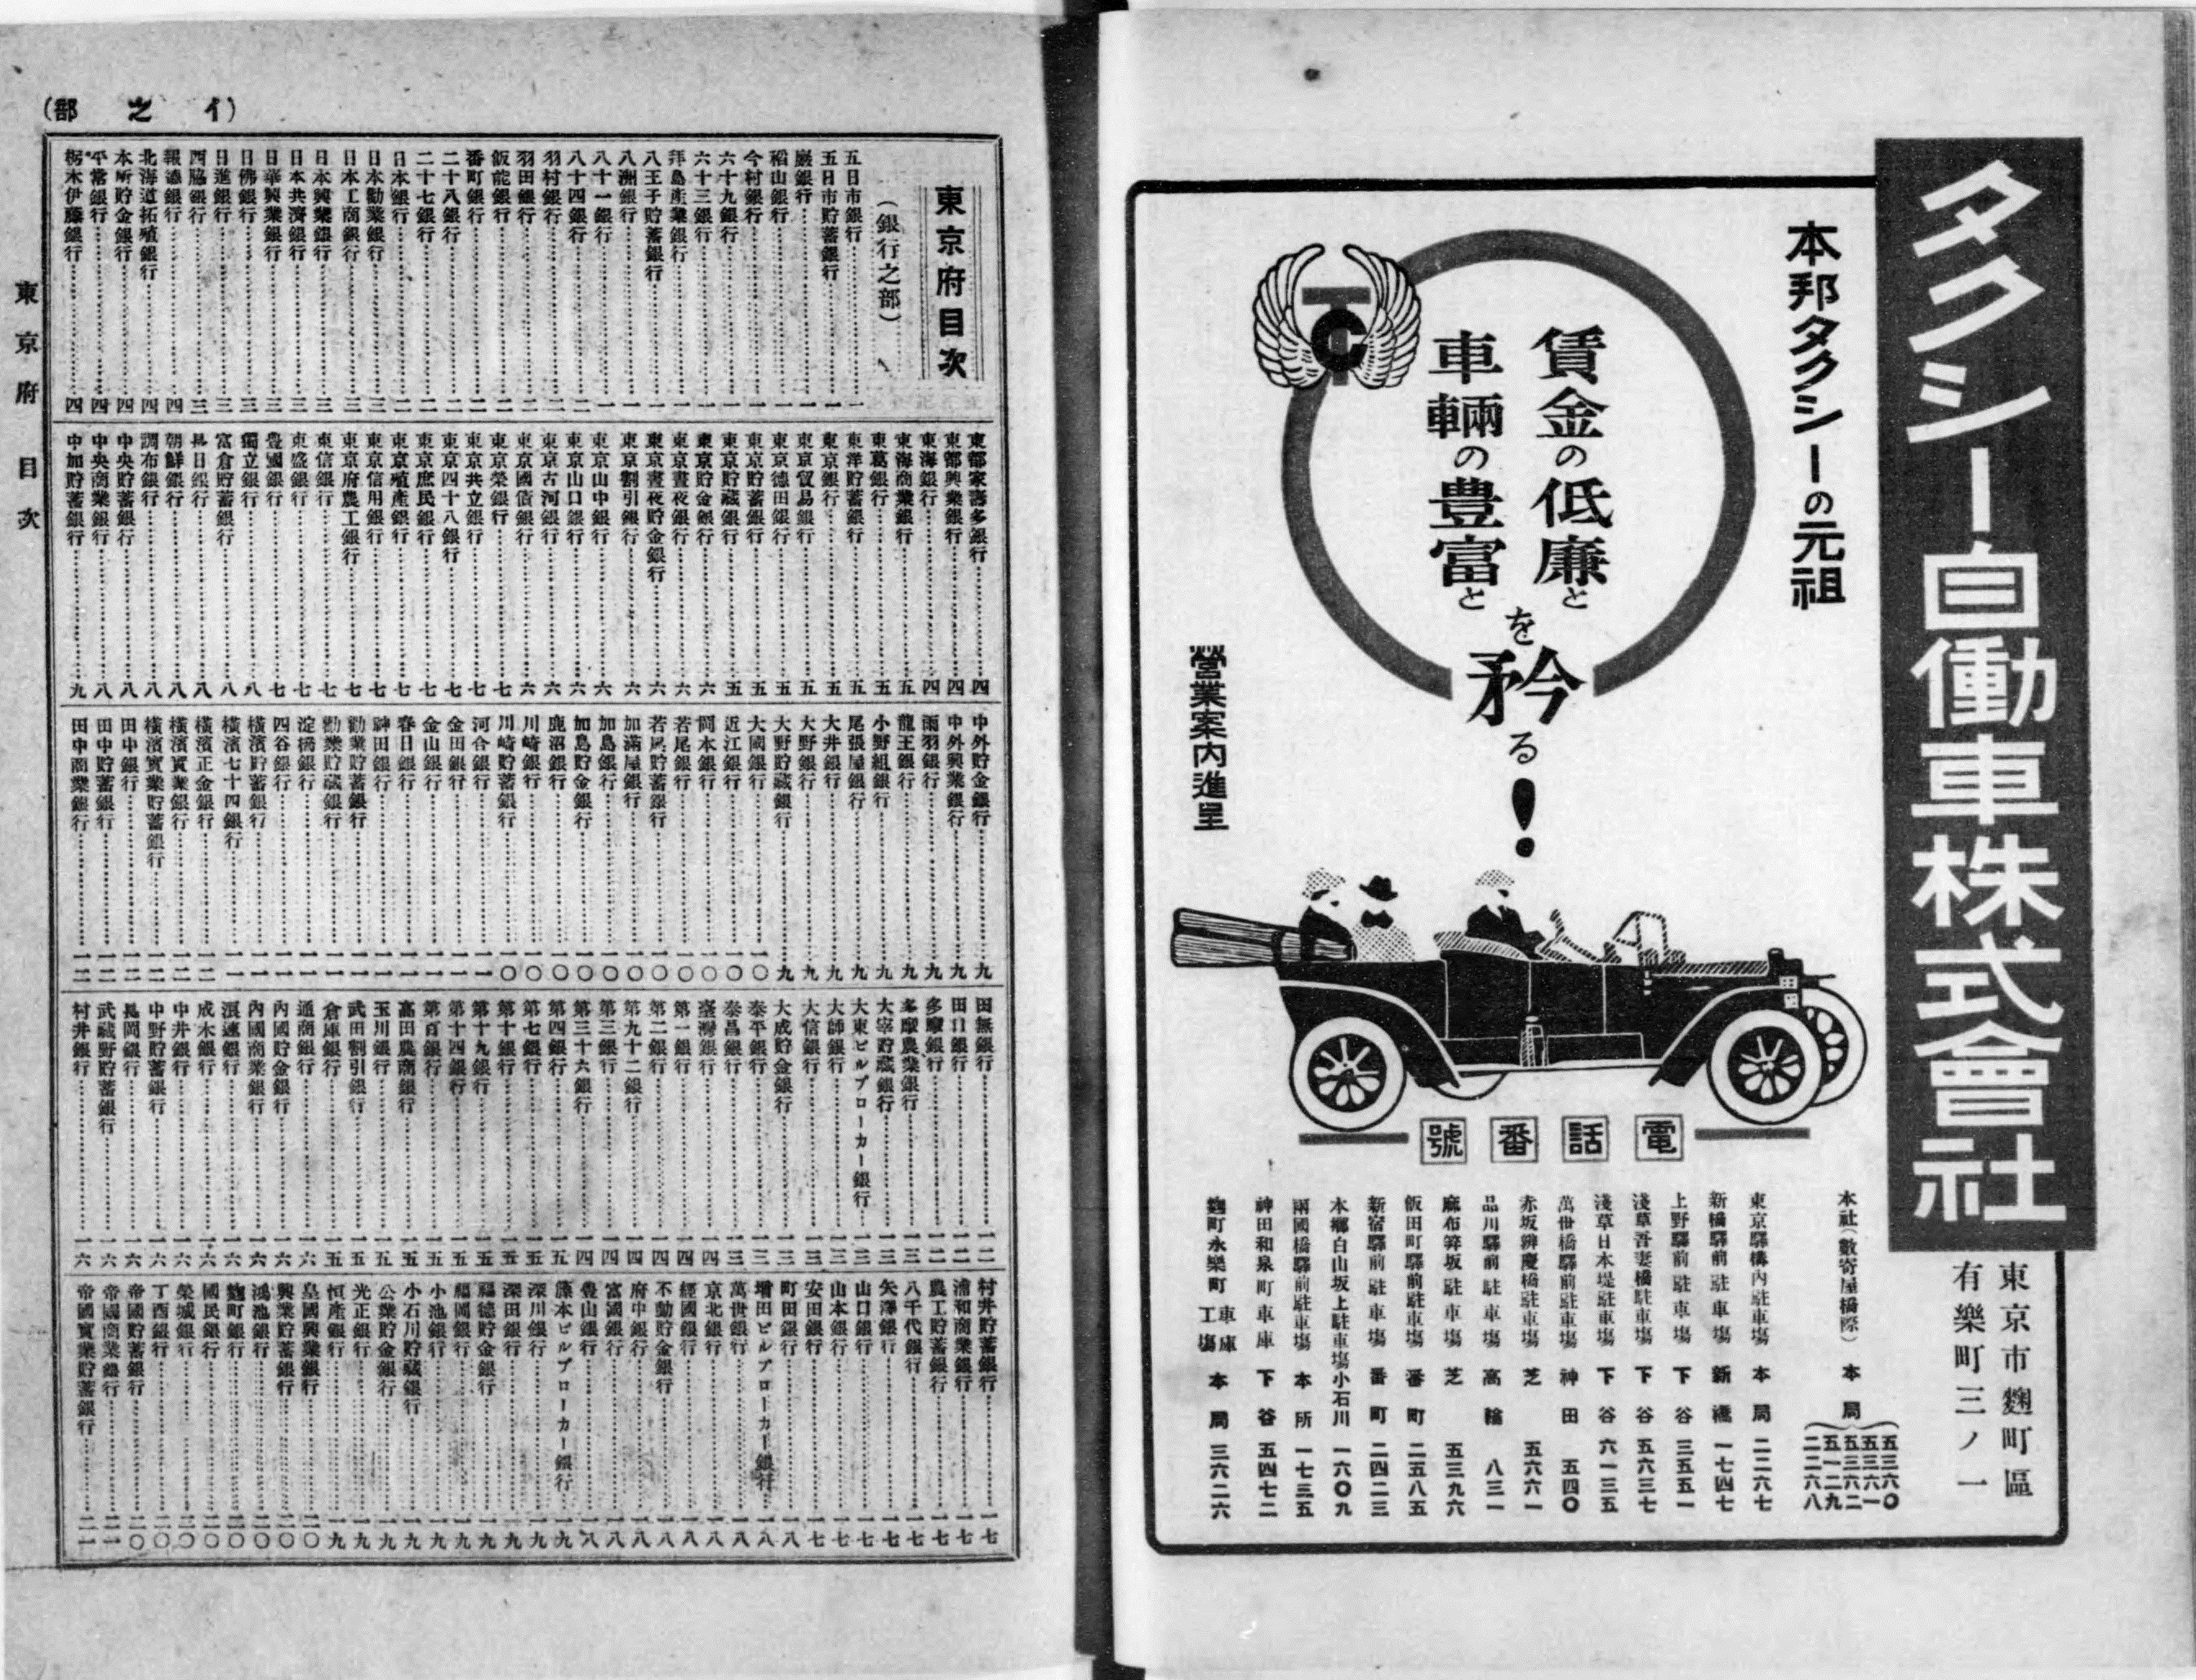 タクシー自働車株式會社
東京市麴町區
有樂町三ノ一
本邦タクシーの元祖
TC
賃金の低廉と
車輛の豊富と
を矜る!
營業案内進呈
電話番號
本社(數寄屋橋際) 本局 五三六〇 五三六一 五三六二 五一二九 二二六八
東京驛構内駐車塲 本局 二二六七
新橋驛前駐車塲 新橋 一七四七
上野驛前駐車塲 下谷 三五五一
淺草吾妻橋駐車塲 下谷 五六三七
淺草日本堤駐車塲 下谷 六一三五
萬世橋驛前駐車塲 神田 五四〇
赤坂辨慶橋駐車塲 芝 五六六一
品川驛前駐車塲 高輪 八三一
麻布笄坂駐車塲 芝 五三九六
飯田町驛前駐車塲 番町 二五八五
新宿驛前駐車塲 番町 二四二三
本郷白山坂上駐車塲 小石川 一六〇九
兩國橋驛前駐車塲 本所 一七三五
神田和泉町車庫 下谷 五四七二
麴町永樂町車庫工塲 本局 三六二六
(イ之部)
東京府目次
(銀行之部)
五日市銀行……一
五日市貯蓄銀行……一
巖銀行……一
稻山銀行……一
今村銀行……一
六十九銀行……一
六十三銀行……一
拜島産業銀行……一
八王子貯蓄銀行……一
八洲銀行……一
八十一銀行……一
八十四銀行……二
羽村銀行……二
羽田銀行……二
飯能銀行……二
番町銀行……二
二十八銀行……二
二十七銀行……二
日本銀行……二
日本勸業銀行……三
日本工商銀行……三
日本興業銀行……三
日本共濟銀行……三
日華興業銀行……三
日佛銀行……三
日進銀行……三
西脇銀行……三
報德銀行……四
北海道拓殖銀行……四
本所貯金銀行……四
平常銀行……四
栃木伊藤銀行……四
東都家壽多銀行……四
東都興業銀行……四
東海銀行……四
東海商業銀行……五
東葛銀行……五
東洋貯蓄銀行……五
東京銀行……五
東京貿易銀行……五
東京德田銀行……五
東京貯蓄銀行……五
東京貯藏銀行……五
東京貯金銀行……六
東京晝夜銀行……六
東京晝夜貯金銀行……六
東京割引銀行……六
東京山中銀行……六
東京山口銀行……六
東京古河銀行……六
東京國債銀行……六
東京榮銀行……七
東京共立銀行……七
東京四十八銀行……七
東京庶民銀行……七
東京殖產銀行……七
東京信用銀行……七
東京府農工銀行……七
東信銀行……七
東盛銀行……七
豊國銀行……七
獨立銀行……八
富倉貯蓄銀行……八
長日銀行……八
朝鮮銀行……八
調布銀行……八
中央貯蓄銀行……八
中央商業銀行……八
中加貯蓄銀行……九
中外貯金銀行……九
中外興業銀行……九
雨羽銀行……九
龍王銀行……九
小野組銀行……九
尾張屋銀行……九
大井銀行……九
大野銀行……九
大野貯藏銀行……九
大國銀行……一〇
近江銀行……一〇
岡本銀行……一〇
若尾銀行……一〇
若尾貯蓄銀行……一〇
加滿屋銀行……一〇
加島銀行……一〇
加島貯金銀行……一〇
鹿沼銀行……一〇
川崎銀行……一〇
川崎貯蓄銀行……一〇
河合銀行……一一
金田銀行……一一
金山銀行……一一
春日銀行……一一
神田銀行……一一
勸業貯蓄銀行……一一
勸業貯藏銀行……一一
淀橋銀行……一一
四谷銀行……一一
橫濱貯蓄銀行……一一
橫濱七十四銀行……一一
橫濱正金銀行……一二
橫濱實業銀行……一二
橫濱實業貯蓄銀行……一二
田中銀行……一二
田中貯蓄銀行……一二
田中商業銀行……一二
田無銀行……一二
田口銀行……一二
多摩銀行……一二
多摩農業銀行……一三
太宰貯藏銀行……一三
大東ビルブローカー銀行……一三
大師銀行……一三
大信銀行……一三
大成貯金銀行……一三
泰平銀行……一三
泰昌銀行……一三
臺灣銀行……一四
第一銀行……一四
第二銀行……一四
第九十二銀行……一四
第三銀行……一四
第三十六銀行……一四
第四銀行……一五
第七銀行……一五
第十銀行……一五
第十九銀行……一五
第十四銀行……一五
第百銀行……一五
高田農商銀行……一五
玉川銀行……一五
武田割引銀行……一五
倉庫銀行……一五
通商銀行……一六
内國貯金銀行……一六
内國商業銀行……一六
浪速銀行……一六
成木銀行……一六
中井銀行……一六
中野貯蓄銀行……一六
長岡銀行……一六
武藏野貯蓄銀行……一六
村井銀行……一六
村井貯蓄銀行……一七
浦和商業銀行……一七
農工貯蓄銀行……一七
八千代銀行……一七
矢澤銀行……一七
山口銀行……一七
山本銀行……一七
安田銀行……一七
町田銀行……一八
增田ビルブローカー銀行……一八
萬世銀行……一八
京北銀行……一八
經國銀行……一八
不動貯金銀行……一八
府中銀行……一八
富國銀行……一八
豊山銀行……一八
藤本ビルブローカー銀行……一九
深川銀行……一九
深田銀行……一九
福德貯金銀行……一九
福岡銀行……一九
小池銀行……一九
小石川貯藏銀行……一九
公業貯金銀行……一九
光正銀行……一九
恒産銀行……一九
皇國興業銀行……二〇
興業貯蓄銀行……二〇
鴻池銀行……二〇
麴町銀行……二〇
國民銀行……二〇
榮城銀行……二〇
丁酉銀行……二〇
帝國貯蓄銀行……二〇
帝國商業銀行……二一
帝國實業貯蓄銀行……二一
東京府 目次